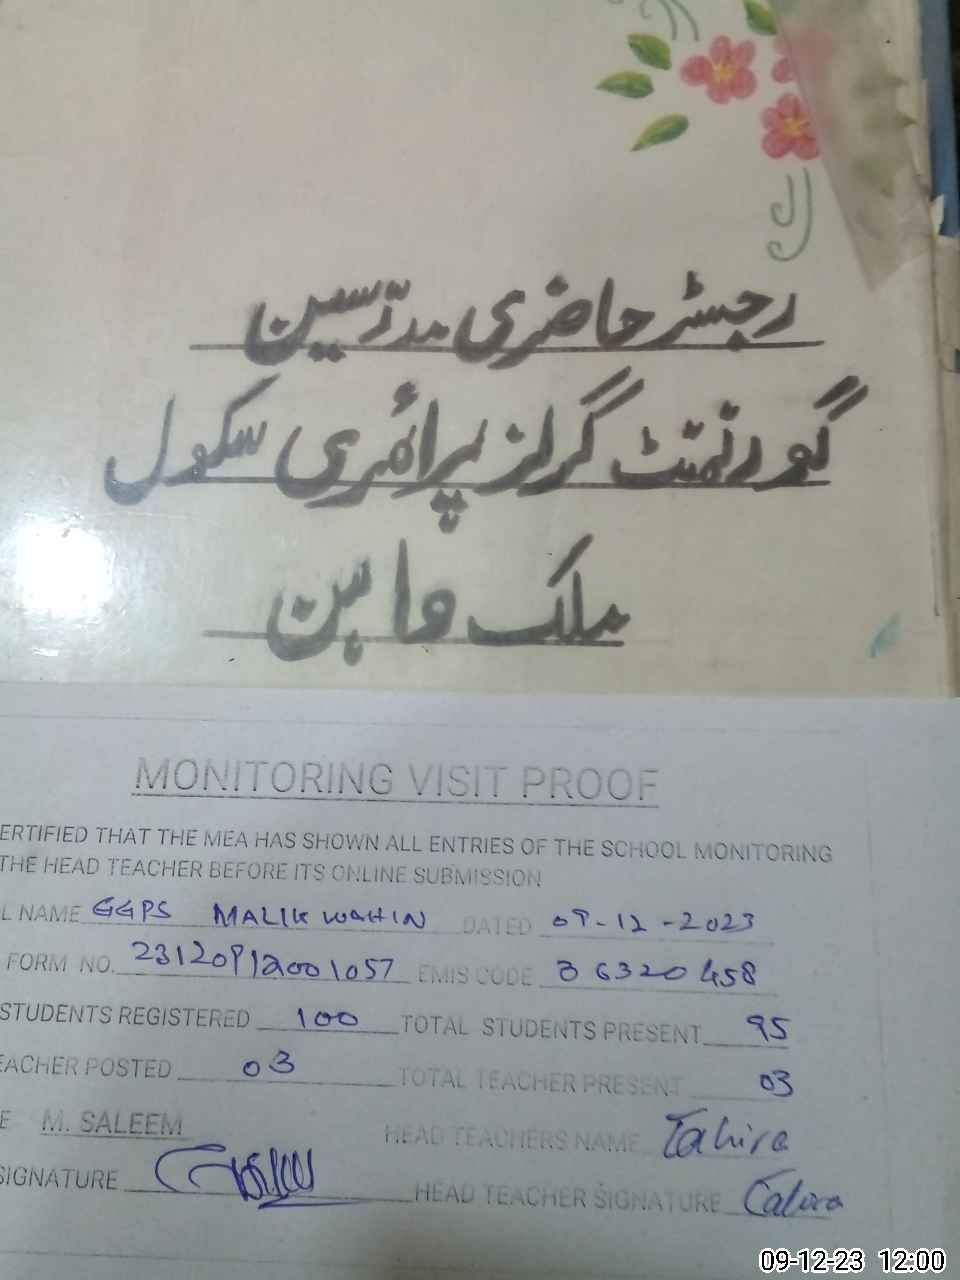 رجسٹر حاضری مدرّسین
گورنمنٹ گرلز پرائمری سکول
ملک واہن
MONITORING VISIT PROOF
ERTIFIED THAT THE MEA HAS SHOWN ALL ENTRIES OF THE SCHOOL MONITORING
THE HEAD TEACHER BEFORE ITS ONLINE SUBMISSION
L NAME GGPS MALIK WAHIN DATED 09-12-2023
FORM NO. 23120912001057 EMIS CODE 36320458
STUDENTS REGISTERED 100 TOTAL STUDENTS PRESENT 95
EACHER POSTED 03 TOTAL TEACHER PRESENT 03
E M. SALEEM HEAD TEACHERS NAME Tahira
SIGNATURE HEAD TEACHER SIGNATURE Tahira
09-12-23 12:00